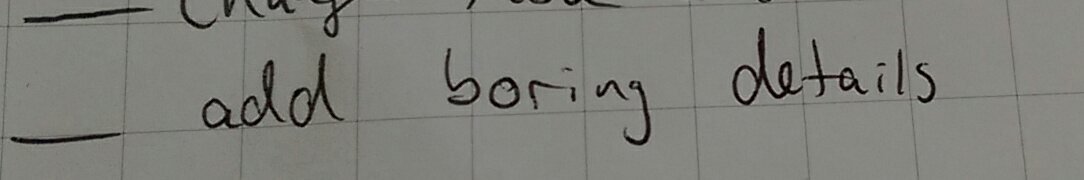 — add boring details